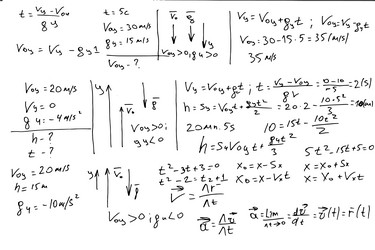 t = (Vy - Voy) / gy
t = 5c
Voy = 30 m/s
gy = 15 m/s
Voy = Vy - gy1
Voy - ?
Vo g Vy
Voy > 0; gy > 0
Vy = Voy + gyt ; Voy = Vy - gyt
Voy = 30 - 15.5 = 35 (m/s)
35 m/s
Voy = 20 m/s
Vy = 0
gy = -4 m/s²
h - ?
t - ?
y
Vo g
Voy > 0;
gy < 0
Vy = Voy + gt ; t = (Vy - Voy) / gy = (0 - 10) / -5 = 2 (s)
h = Sy = Voyt + gyt² / 2 = 20.2 -
20 m. 5s
10 = 15t - 10t² / 2
h = S + Voyt + gyt² / 3
5t² 15t + 5 = 0
Voy = 20 m/s
h = 15m
gy = -10 m/s²
y
Vo g
Voy > 0; gy < 0
t² - 3t + 3 = 0
t² - 2 = t2 + 1
x0 = x - Sx
x = x0 + Sx
x0 = x - Vxt
x = x0 + Vxt
V = Δr / Δt
a = Δv / Δt
a = lim Δt→0 = dv / dt = v'(t) = r(t)